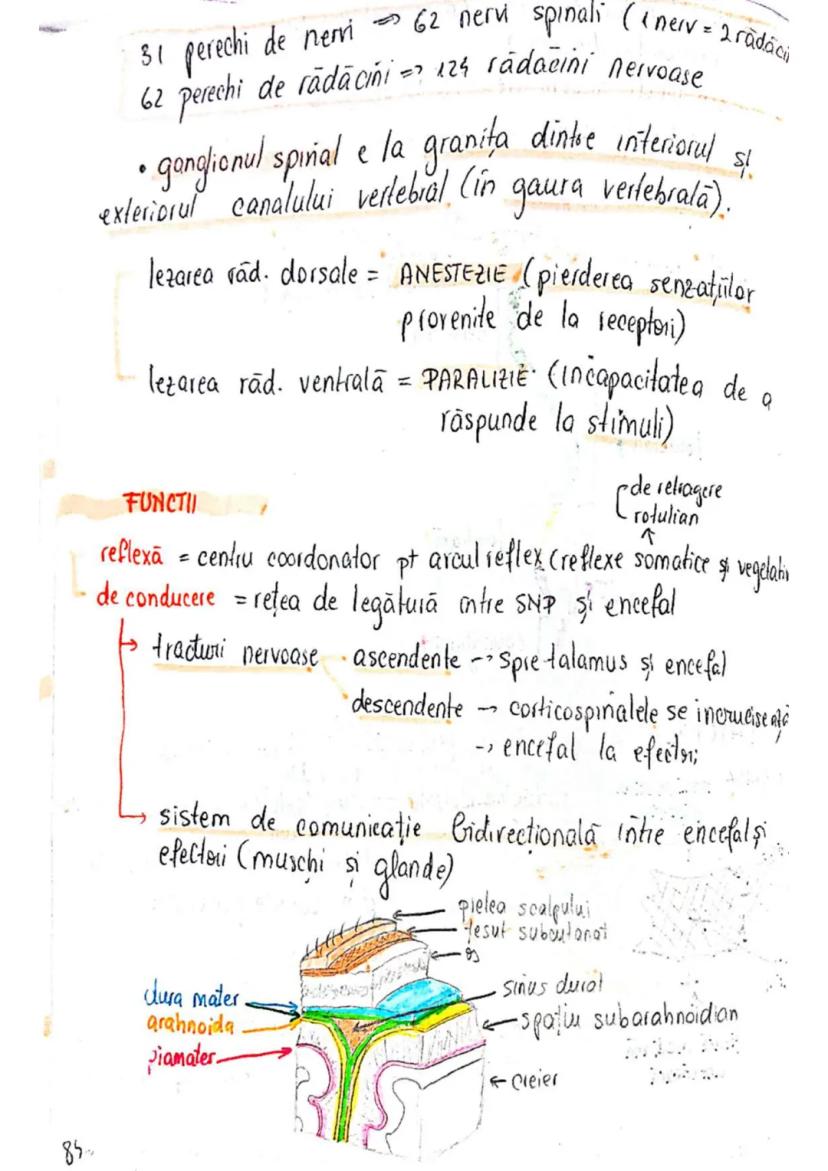 31 perechi de nervi => 62 nervi spinali (1 nerv = 2 rădăci
62 perechi de rădăcini => 124 rădăcini nervoase
• ganglionul spinal e la granița dintre interiorul și
exteriorul canalului vertebral (în gaura vertebrală).
lezarea răd. dorsale = ANESTEZIE (pierderea senzațiilor
provenite de la receptori)
lezarea răd. ventrală = PARALIZIE (incapacitatea de a
răspunde la stimuli)
FUNCTII
de retragere
rotulian
reflexă = centru coordonator pt arcul reflex (reflexe somatice și vegetativ
de conducere = rețea de legătură între SNP și encefal
tracturi nervoase ascendente -> spre talamus și encefal
descendente -> corticospinalele se incrucisează
-> encefal la efectori
sistem de comunicație bidirecțională între encefal și
efectori (mușchi și glande)
pielea scalpului
țesut subcutanat
os
dura mater
sinus dural
arahnoida
spațiu subarahnoidian
piamater
creier